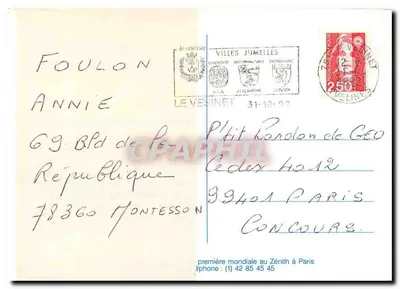 FOULON
ANNIE
69 Bld de la
République
78360 MONTESSON
VILLES JUMELLES
LE VESINET 31-10-92
2,50
P'tit Rondon de GEO
Cedex 4012
99401 PARIS
CONCOURS
première mondiale au Zénith à Paris
éphone : (1) 42 85 45 45